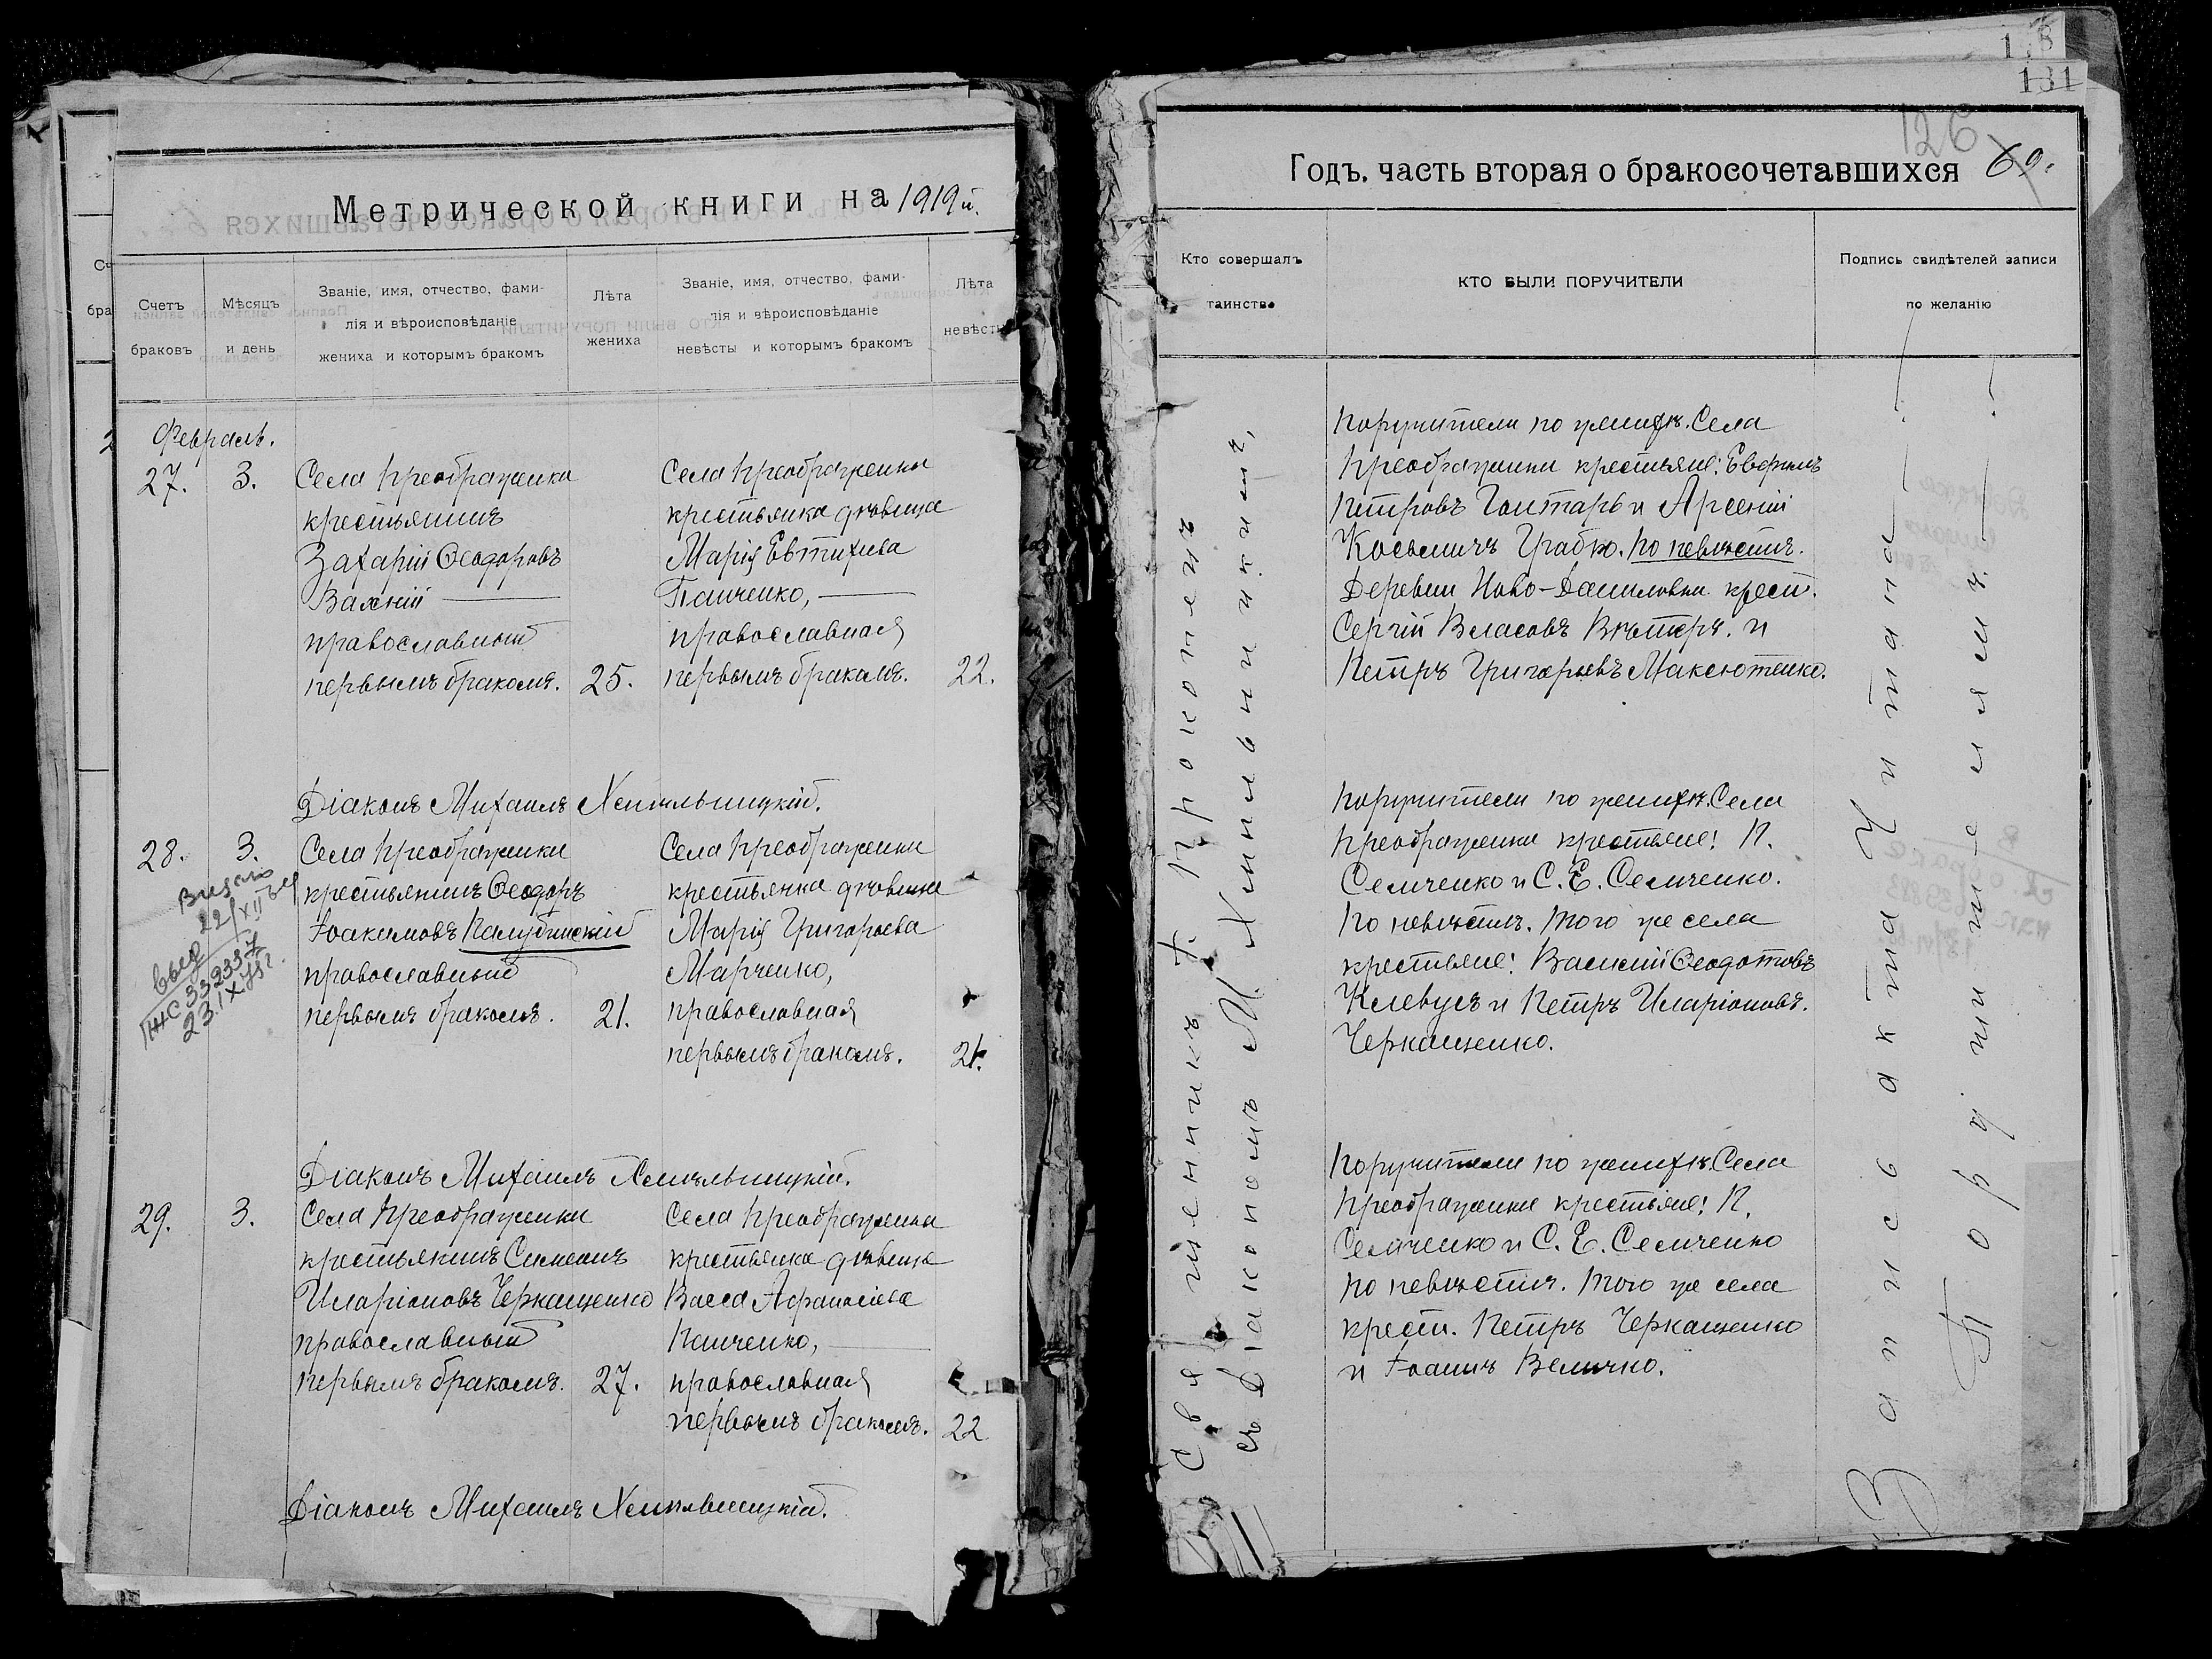 Метрической книги на 1919й.
Счетъ браковъ
Мѣсяцъ и день
Званіе, имя, отчество, фами-
лія и вѣроисповѣданіе
жениха и которымъ бракомъ
Лѣта жениха
Званіе, имя, отчество, фами-
лія и вѣроисповѣданіе
невѣсты и которымъ бракомъ
Лѣта
невѣсты
Февраль.
27. 3.
Села Преображенки
крестьянинъ
Захарій Ѳеодоровъ
православный
первымъ бракомъ. 25.
Села Преображенки
крестьянка дѣвица
Марія Евтихіева
Панченко,
православная
первымъ бракомъ. 22.
Діаконъ Михаилъ Хмильницкій.
28. 3.
Села Преображенки
крестьянинъ Ѳеодоръ
Іоакимовъ
православный
первымъ бракомъ. 21.
Села Преображенки
крестьянка дѣвица
Марія Григорьева
Марченко,
православная
первымъ бракомъ. 21.
Діаконъ Михаилъ Хмильницкій.
29. 3.
Села Преображенки
крестьянинъ Симеонъ
Иларіоновъ Черкащенко
православный
первымъ бракомъ. 27.
Села Преображенки
крестьянка дѣвица
Васса Афанасіева
Панченко,
православная
первымъ бракомъ. 22
Діаконъ Михаилъ Хмильницкій.
131
126
69.
Годъ. часть вторая о бракосочетавшихся
Кто совершалъ
таинство
КТО БЫЛИ ПОРУЧИТЕЛИ
Подпись свидѣтелей записи
по желанію
Священникъ Ѳ. Прокопенъ
съ діакономъ М. Хмильницкимъ,
Поручители по женихѣ. Села
Преображенки крестьяне: Евфимъ
Петровъ Гонтарь и Арсеній
Косьмичъ Грабко. По невѣстѣ.
Деревни Ново-Даниловки крест.
Сергій Власовъ Вѣтеръ. и
Петръ Григорьевъ Максютенко.
Поручители по женихѣ. Села
Преображенки крестьяне: П.
Семченко и С. Е. Семченко.
По невѣстѣ. того же села
крестьяне: Василій Ѳеодотовъ
Клевусъ и Петръ Иларіоновъ.
Черкащенко.
Поручители по женихѣ. Села
Преображенки крестьяне: П.
Семченко и С. Е. Семченко
по невѣстѣ. того же села
крест. Петръ Черкащенко
и Іоаннъ Величко.
Запись акта читана
Поручителями.